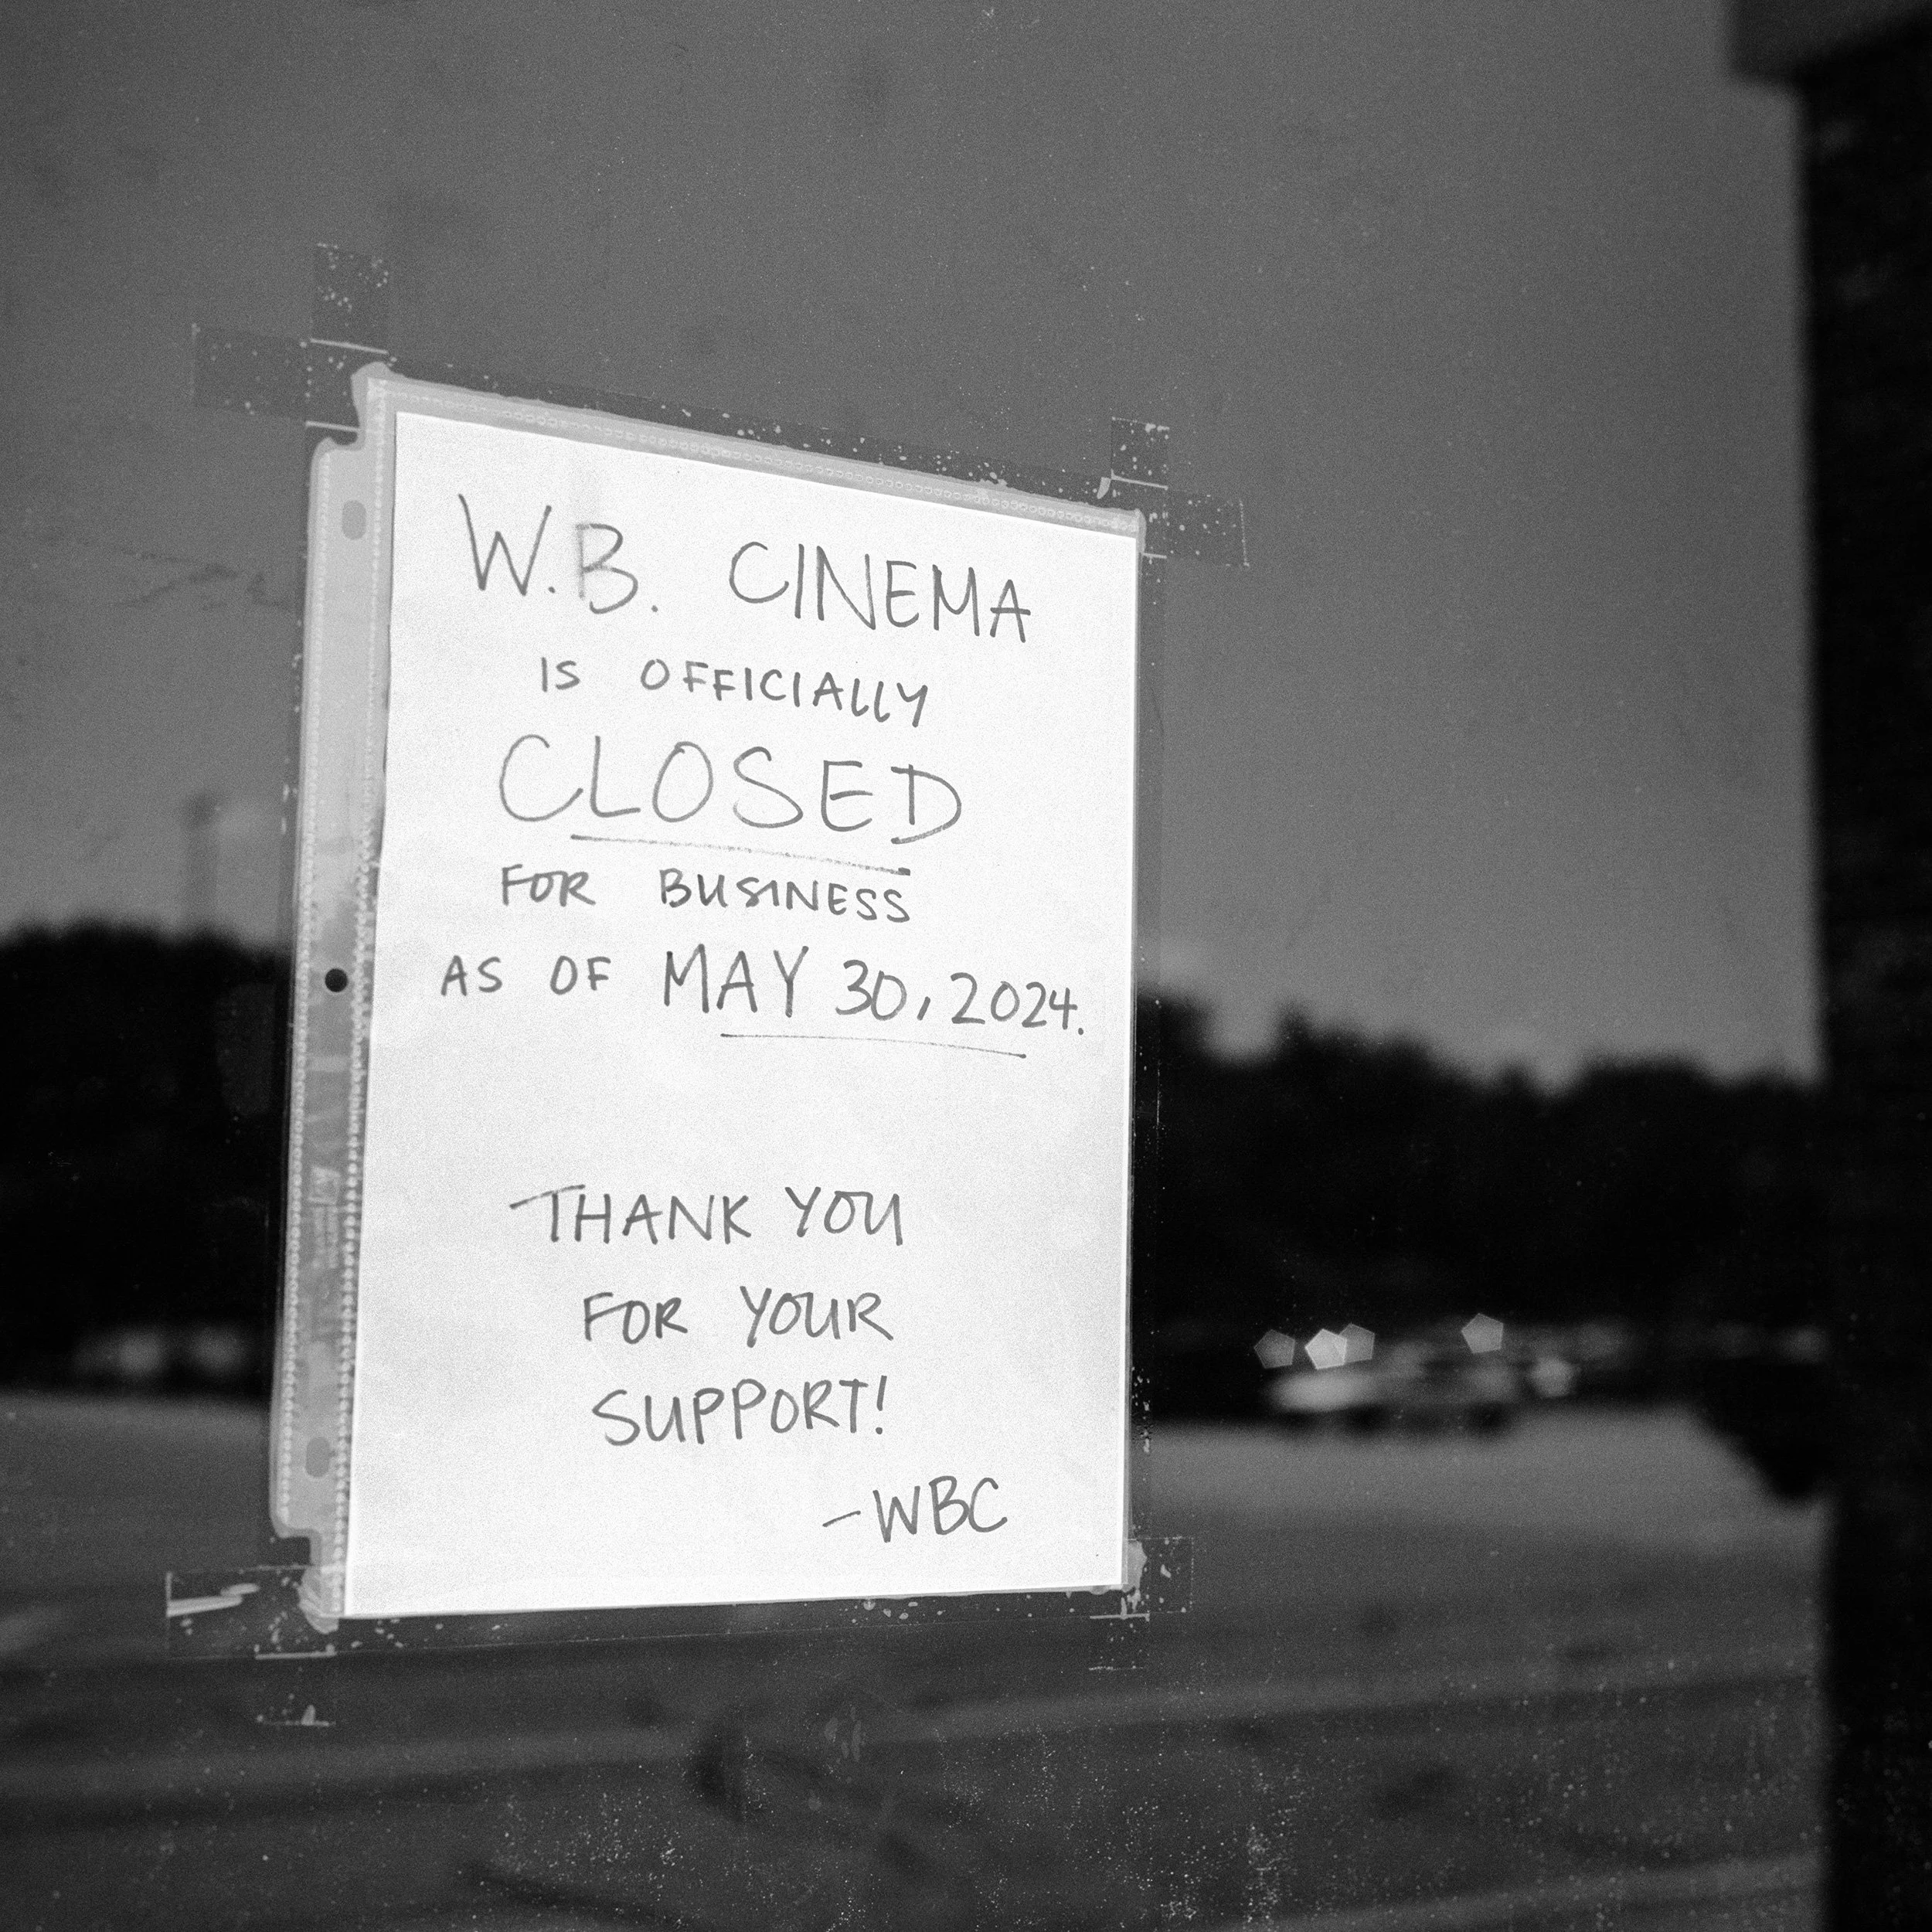 W.B. CINEMA
IS OFFICIALLY
CLOSED
FOR BUSINESS
AS OF MAY 30, 2024.
THANK YOU
FOR YOUR
SUPPORT!
-WBC